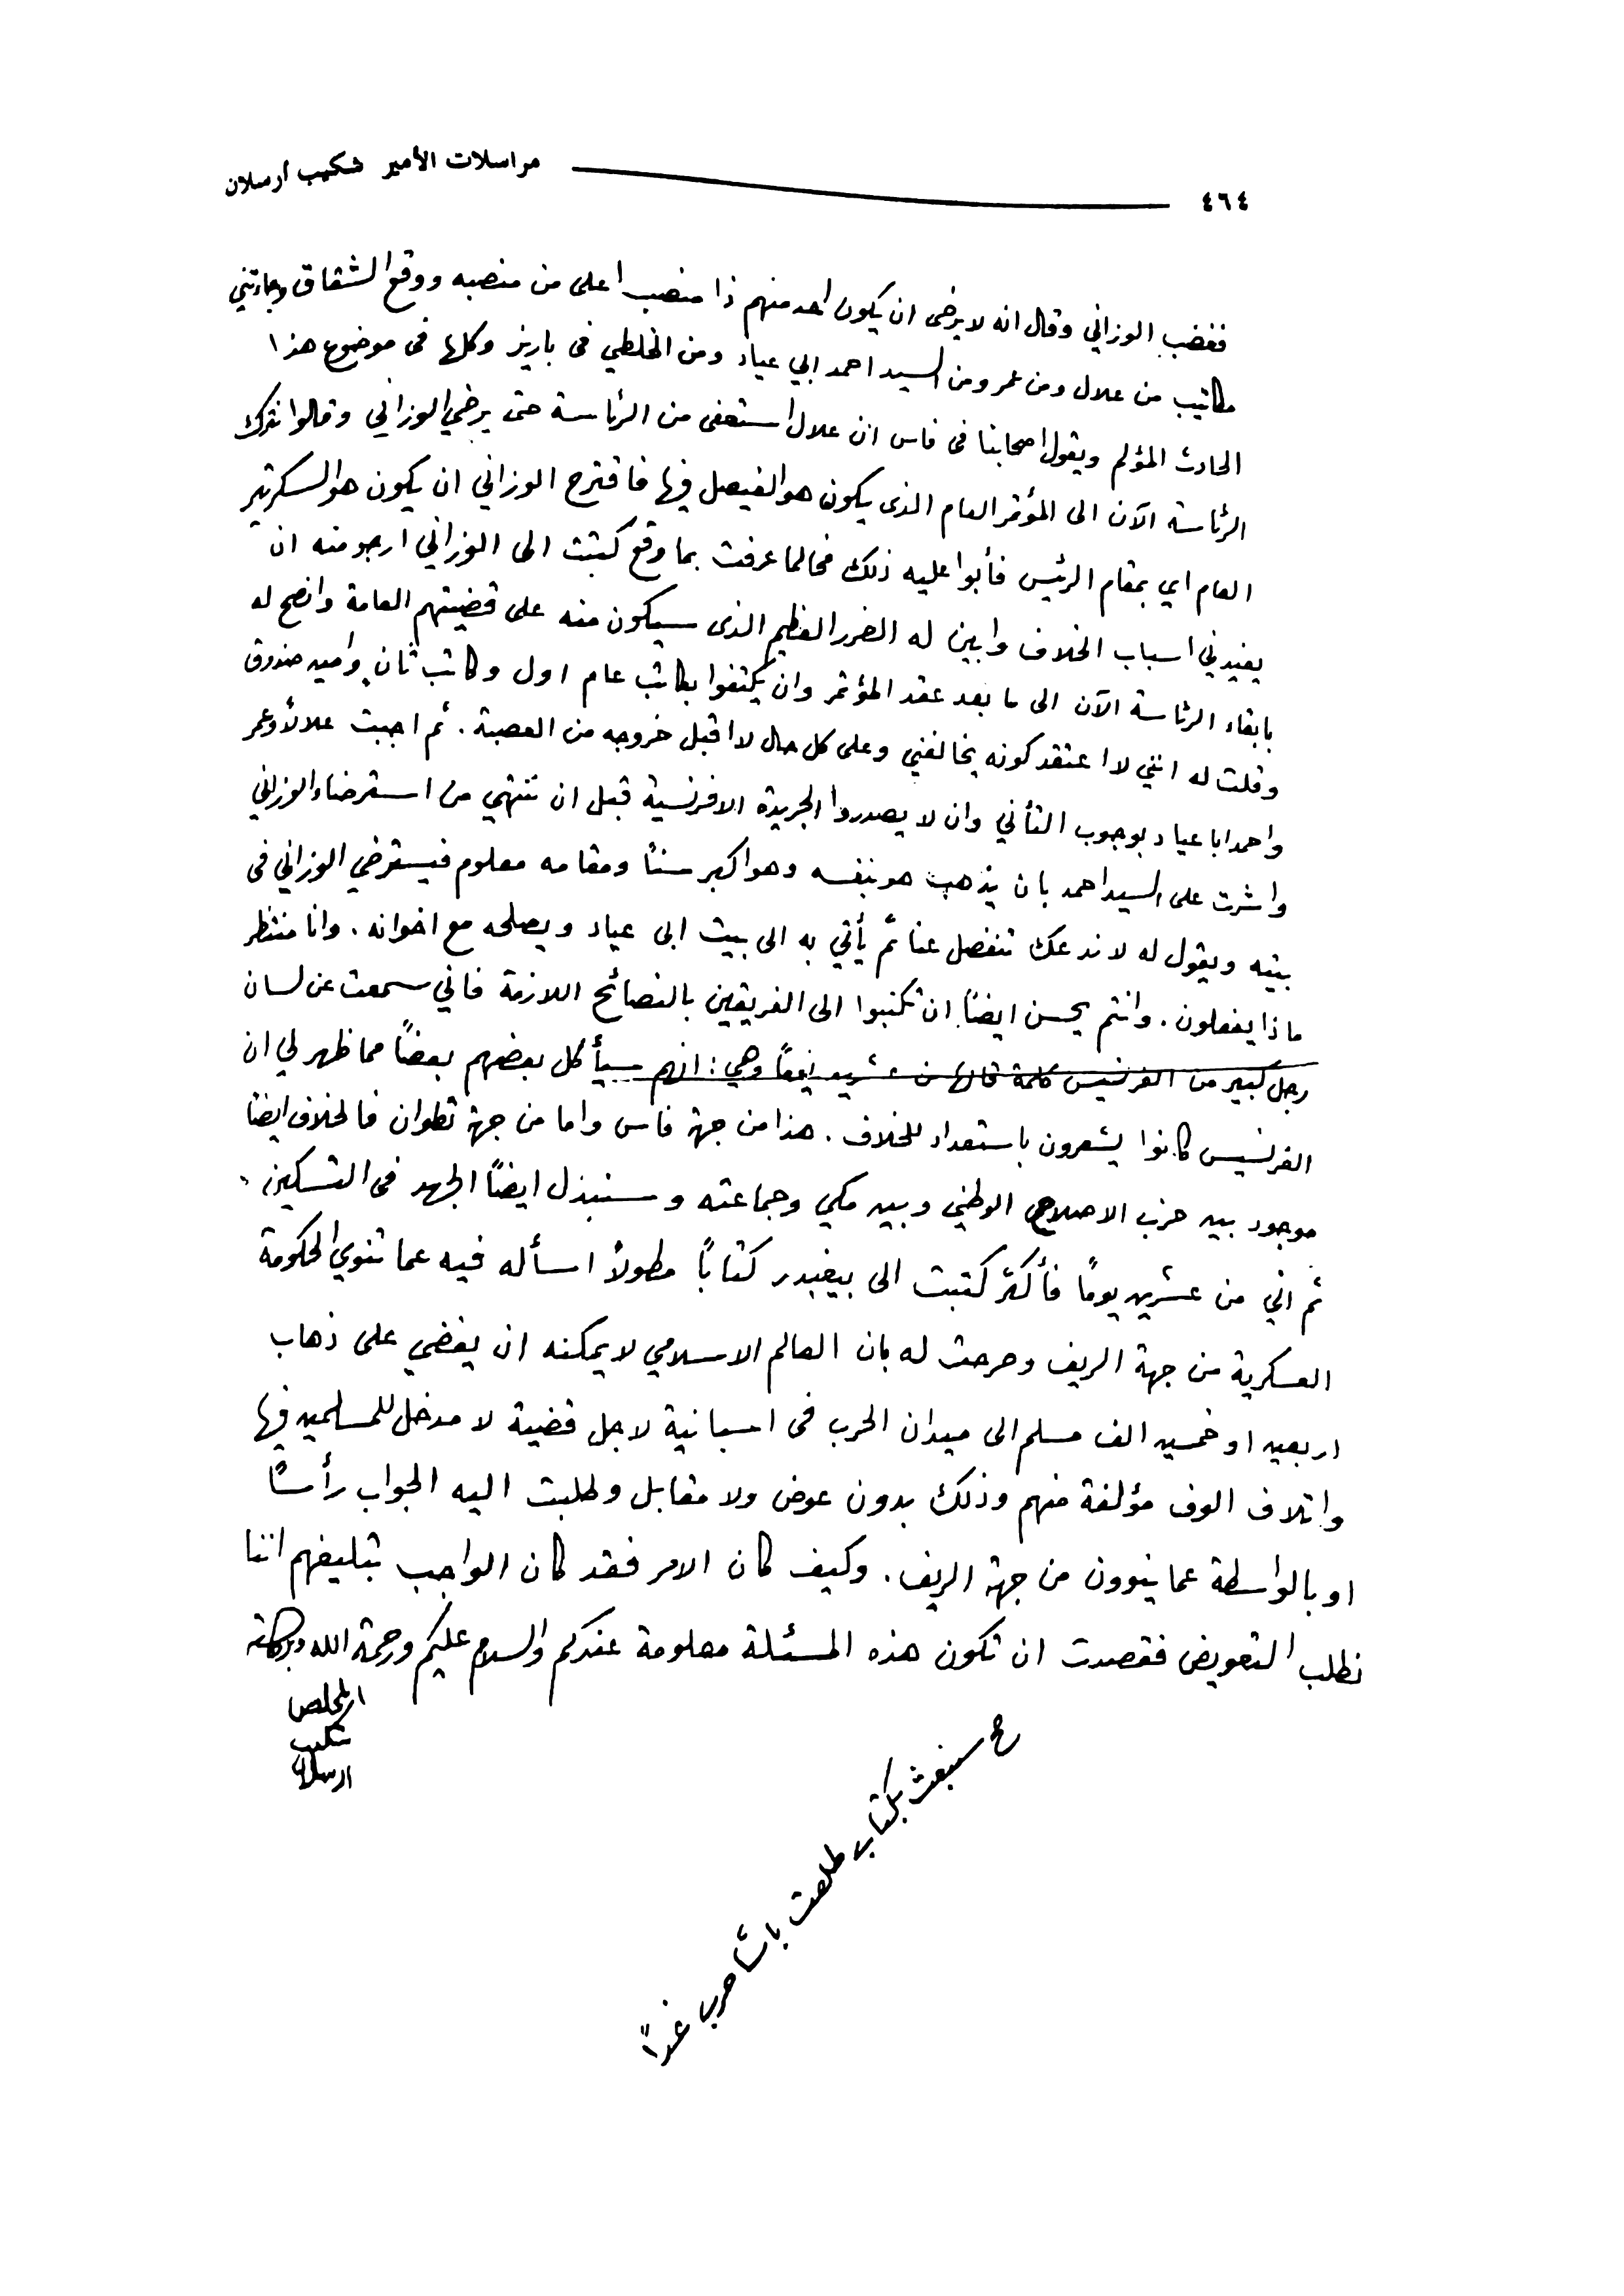 ٤٦٤ مراسلات الأمير شكيب أرسلان
فغضب الوزاني وقال انه لا يرضى ان يكون احد منهم ذا منصب اعلى من منصبه ووقع الشقاق وجاءتني
مكاتيب من علال ومن عمر ومن السيد احمد ابي عياد ومن الخلطي فى باريز وكلها فى موضوع هذا
الحادث المؤلم ويقول اصحابنا فى فاس ان علال استعفى من الرئاسة حتى يرضي الوزاني وقالوا نترك
الرئاسة الآن الى المؤتمر العام الذى يكون هو الفيصل فيها فاقترح الوزاني ان يكون هو السكرتير
العام اي بمقام الرئيس فأبوا عليه ذلك فحالما عرفت بما وقع كتبت الى الوزاني ارجو منه ان
يفيدني اسباب الخلاف وابين له الضرر العظيم الذى سيكون منه على قضيتهم العامة وانصح له
بابقاء الرئاسة الآن الى ما بعد عقد المؤتمر وان يكتفوا بكاتب عام اول وكاتب ثانٍ وامين صندوق
وقلت له انني لا اعتقد كونه يخالفني وعلى كل حال لا اقبل خروجه من العصبة . ثم اجبت علالاً وعمر
واحمد ابا عياد بوجوب التأني وان لا يصدروا الجريدة الافرنسية قبل ان تنتهي من استرضاء الوزاني
واشرت على السيد احمد بان يذهب هو بنفسه وهو اكبر سنًا ومقامه معلوم فيسترضي الوزاني فى
بيته ويقول له لا ندعك تنفصل عنا ثم يأتي به الى بيت ابى عياد ويصلحه مع اخوانه . وانا منتظر
ماذا يفعلون . وانتم يحسن ايضًا ان تكتبوا الى الفريقين بالنصائح اللازمة فاني سمعت عن لسان
رجل كبير من الفرنسيس كلمة قالها من عشرين يومًا وهي : انهم سيأكل بعضهم بعضًا مما ظهر لي ان
الفرنسيس كانوا يشعرون باستعداد للخلاف . هذا من جهة فاس واما من جهة تطوان فالخلاف ايضًا
موجود بين حزب الاصلاح الوطني وبين مكي وجماعته وسنبذل ايضًا الجهد فى التسكين .
ثم اني من عشرين يومًا فأكثر كتبت الى بيغبدر كتابًا مطولاً اسأله فيه عما تنوي الحكومة
العسكرية من جهة الريف وصرحت له بان العالم الاسلامي لا يمكنه ان يغضي على ذهاب
اربعين او خمسين الف مسلم الى ميدان الحرب فى اسبانية لاجل قضية لا مدخل للمسلمين فيها
واتلاف الوف مؤلفة منهم وذلك بدون عوض ولا مقابل وطلبت اليه الجواب رأسًا
او بالواسطة عما ينوون من جهة الريف . وكيف كان الامر فقد كان الواجب تبليغهم اننا
نطلب التعويض فقصدت ان تكون هذه المسئلة معلومة عندكم والسلام عليكم ورحمة الله وبركاته
المخلص
شكيب
ارسلان
سنبعث بكتاب طلعت باشا حرب غدًا